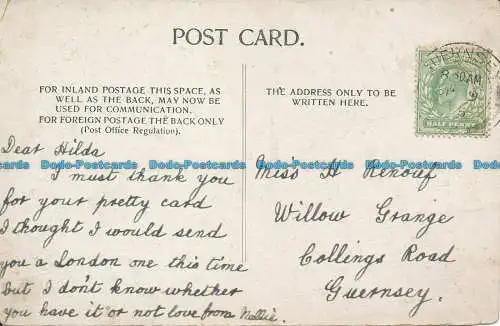 POST CARD.
FOR INLAND POSTAGE THIS SPACE, AS
WELL AS THE BACK, MAY NOW BE
USED FOR COMMUNICATION.
FOR FOREIGN POSTAGE THE BACK ONLY
(Post Office Regulation).
THE ADDRESS ONLY TO BE
WRITTEN HERE.
HALF PENNY
Dear Hilda
I must thank you
for your pretty card
I thought I would send
you a London one this time
but I don't know whether
you have it or not love from Nellie.
Miss H Renouf
Willow Grange
Collings Road
Guernsey.
Bodo-Postcards Bodo-Postcards Bodo-Postcards Bodo-Postcards